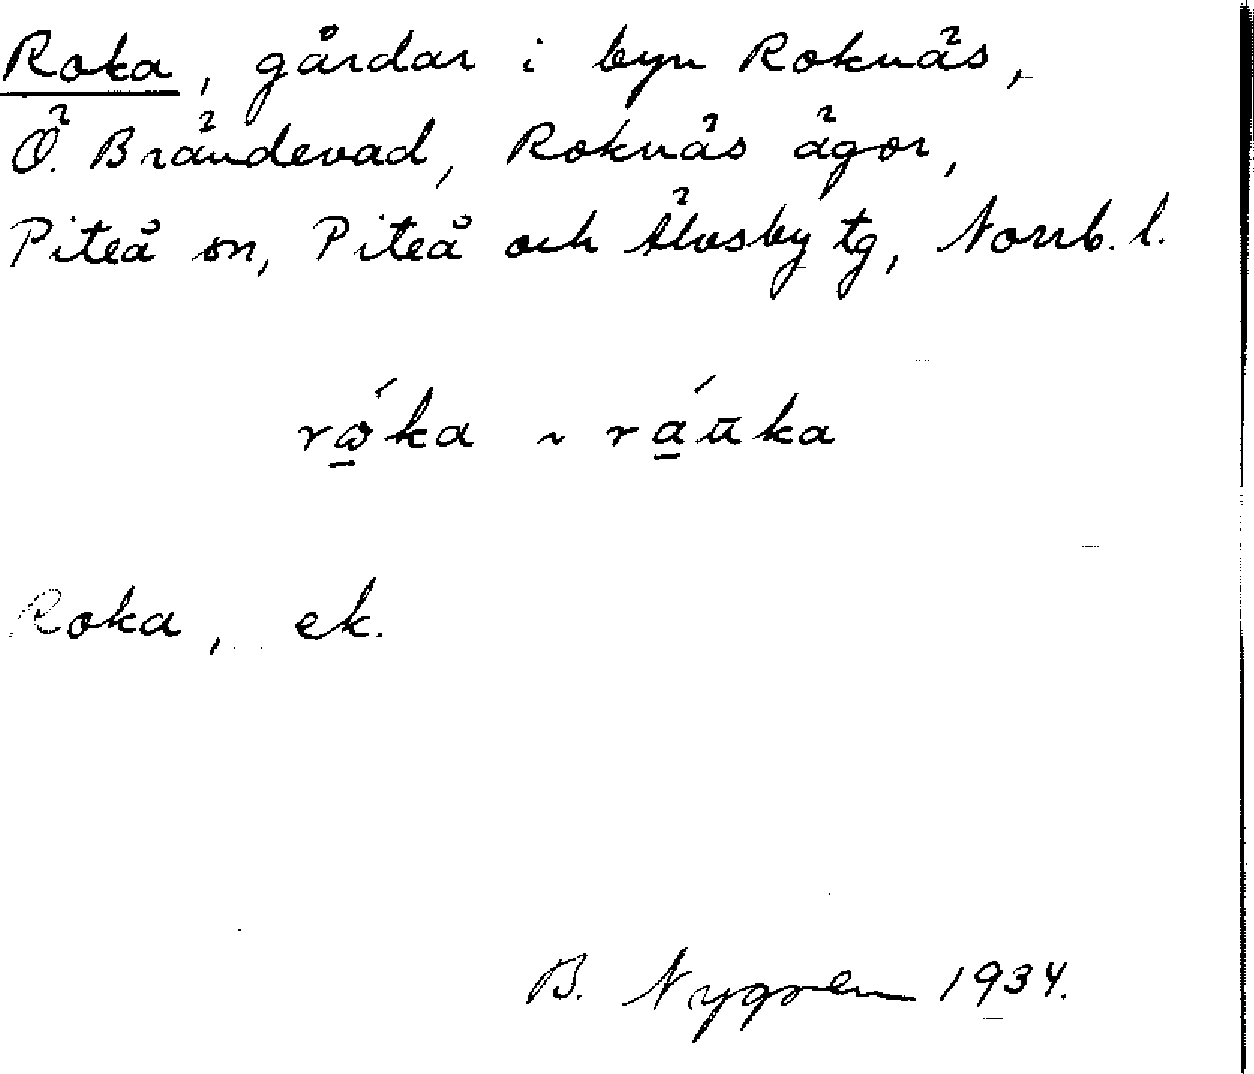 Roka, gårdar i byn Roknäs,
Ö. Brändevad, Roknäs ägor,
Piteå sn, Piteå och Älvsby tg, Norrb. l.
rώ̱ka ~ rá̱ūka
Roka, ek.
B. Nygren 1934.